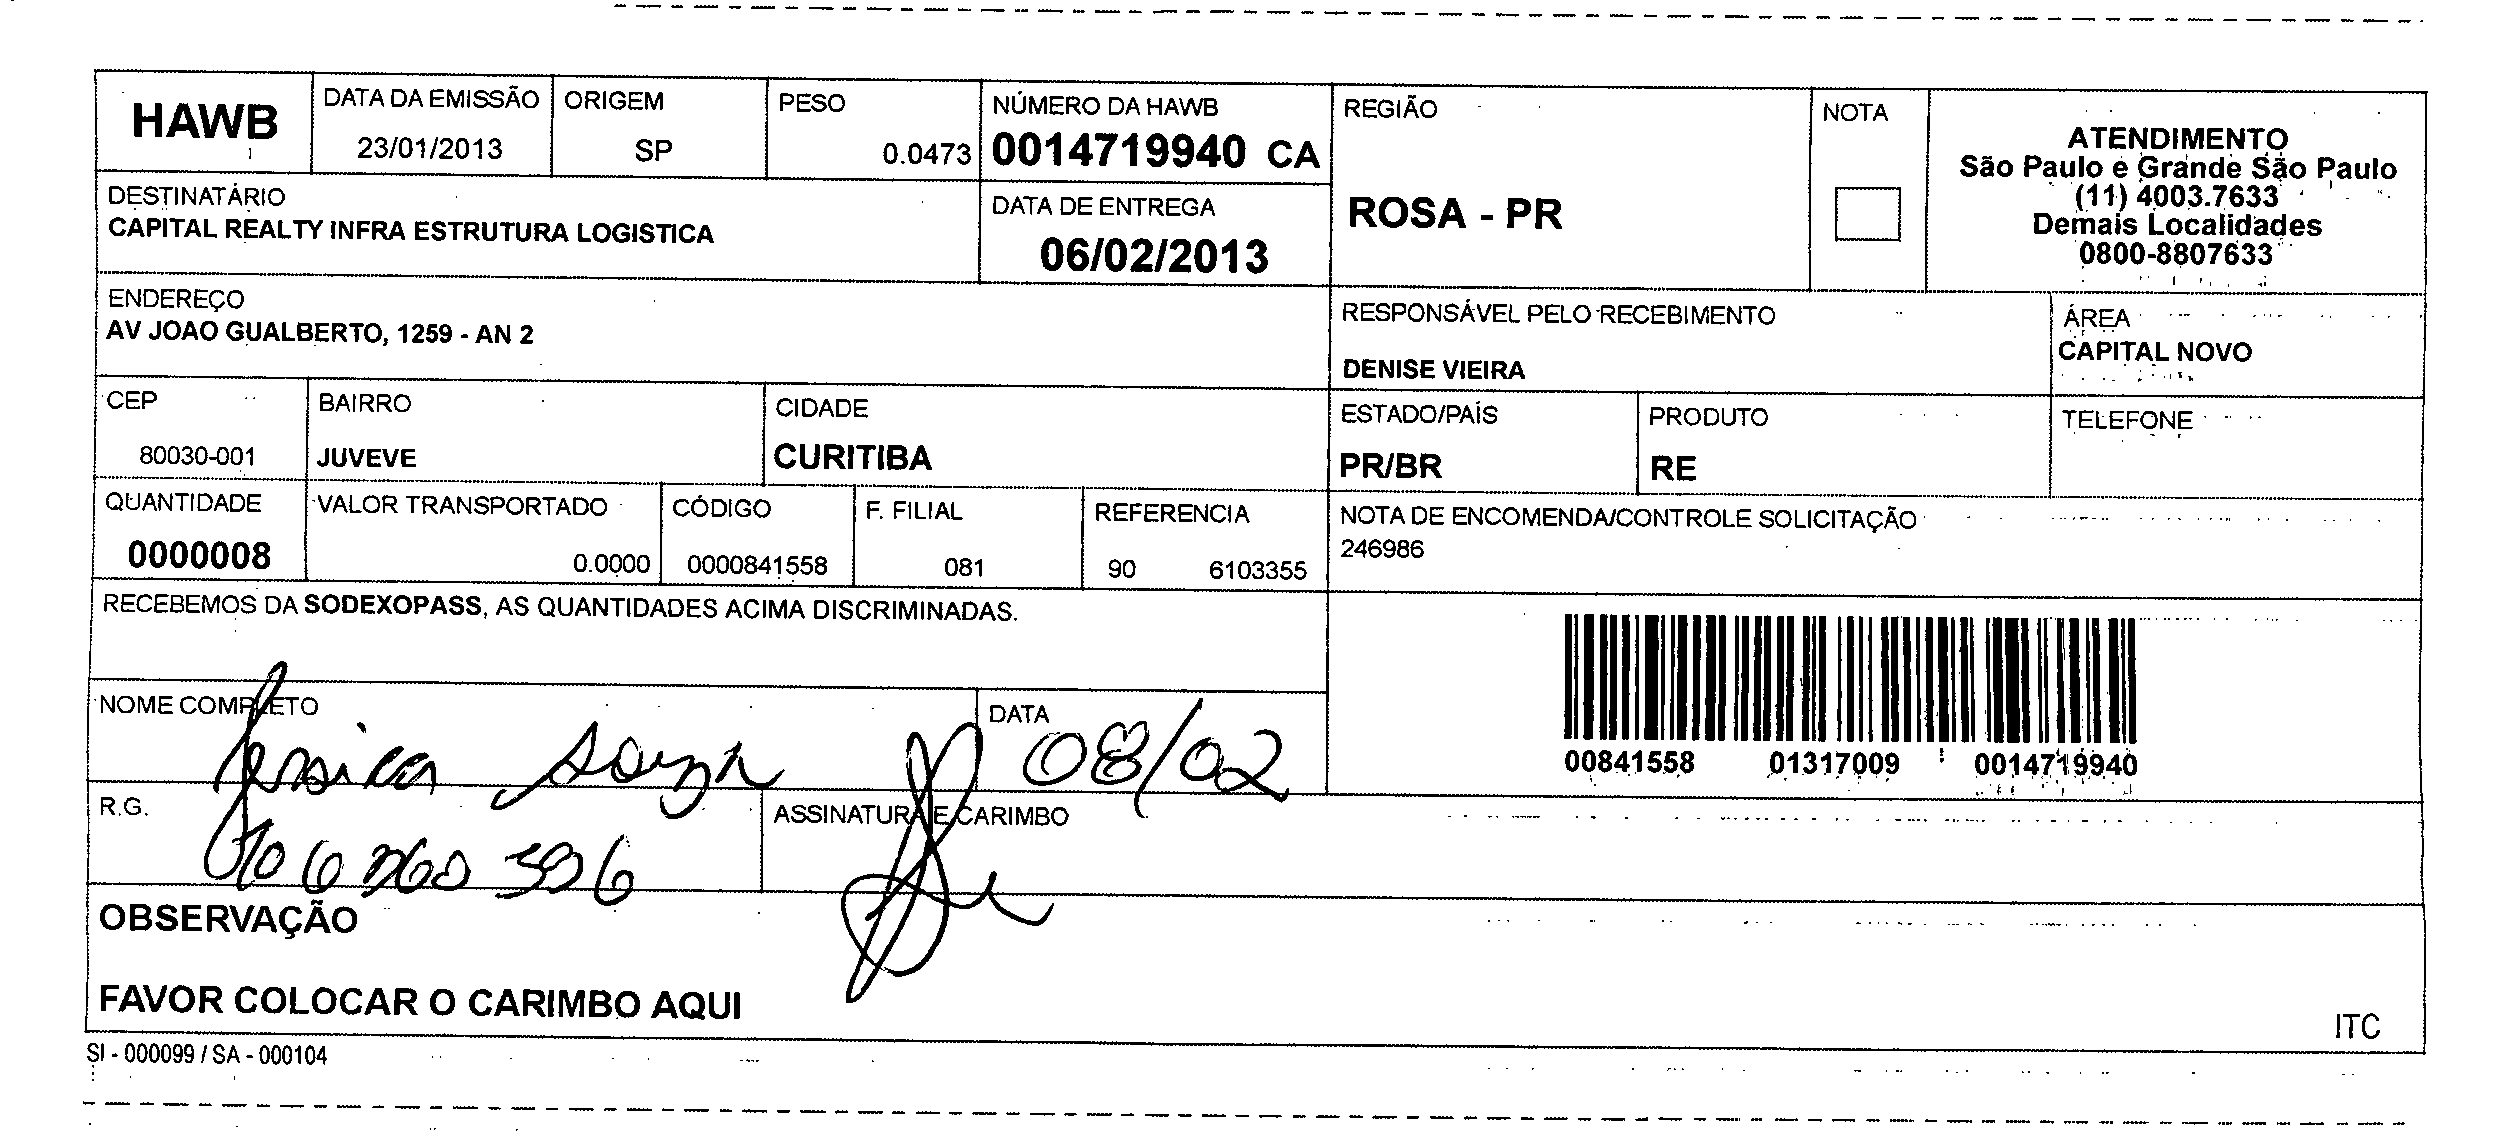 HAWB
DATA DA EMISSÃO
23/01/2013
ORIGEM
SP
PESO
0.0473
NÚMERO DA HAWB
0014719940 CA
REGIÃO
ROSA - PR
NOTA
ATENDIMENTO
São Paulo e Grande São Paulo
(11) 4003.7633
Demais Localidades
0800-8807633
DESTINATÁRIO
CAPITAL REALTY INFRA ESTRUTURA LOGISTICA
DATA DE ENTREGA
06/02/2013
ENDEREÇO
AV JOAO GUALBERTO, 1259 - AN 2
RESPONSÁVEL PELO RECEBIMENTO
DENISE VIEIRA
ÁREA
CAPITAL NOVO
CEP
80030-001
BAIRRO
JUVEVE
CIDADE
CURITIBA
ESTADO/PAÍS
PR/BR
PRODUTO
RE
TELEFONE
QUANTIDADE
0000008
VALOR TRANSPORTADO
0.0000
CÓDIGO
0000841558
F. FILIAL
081
REFERENCIA
90 6103355
NOTA DE ENCOMENDA/CONTROLE SOLICITAÇÃO
246986
RECEBEMOS DA SODEXOPASS, AS QUANTIDADES ACIMA DISCRIMINADAS.
00841558 01317009 0014719940
NOME COMPLETO
Jessica Souza
DATA
08/02
R.G.
ASSINATURA E CARIMBO
OBSERVAÇÃO
FAVOR COLOCAR O CARIMBO AQUI
ITC
SI - 000099 / SA - 000104